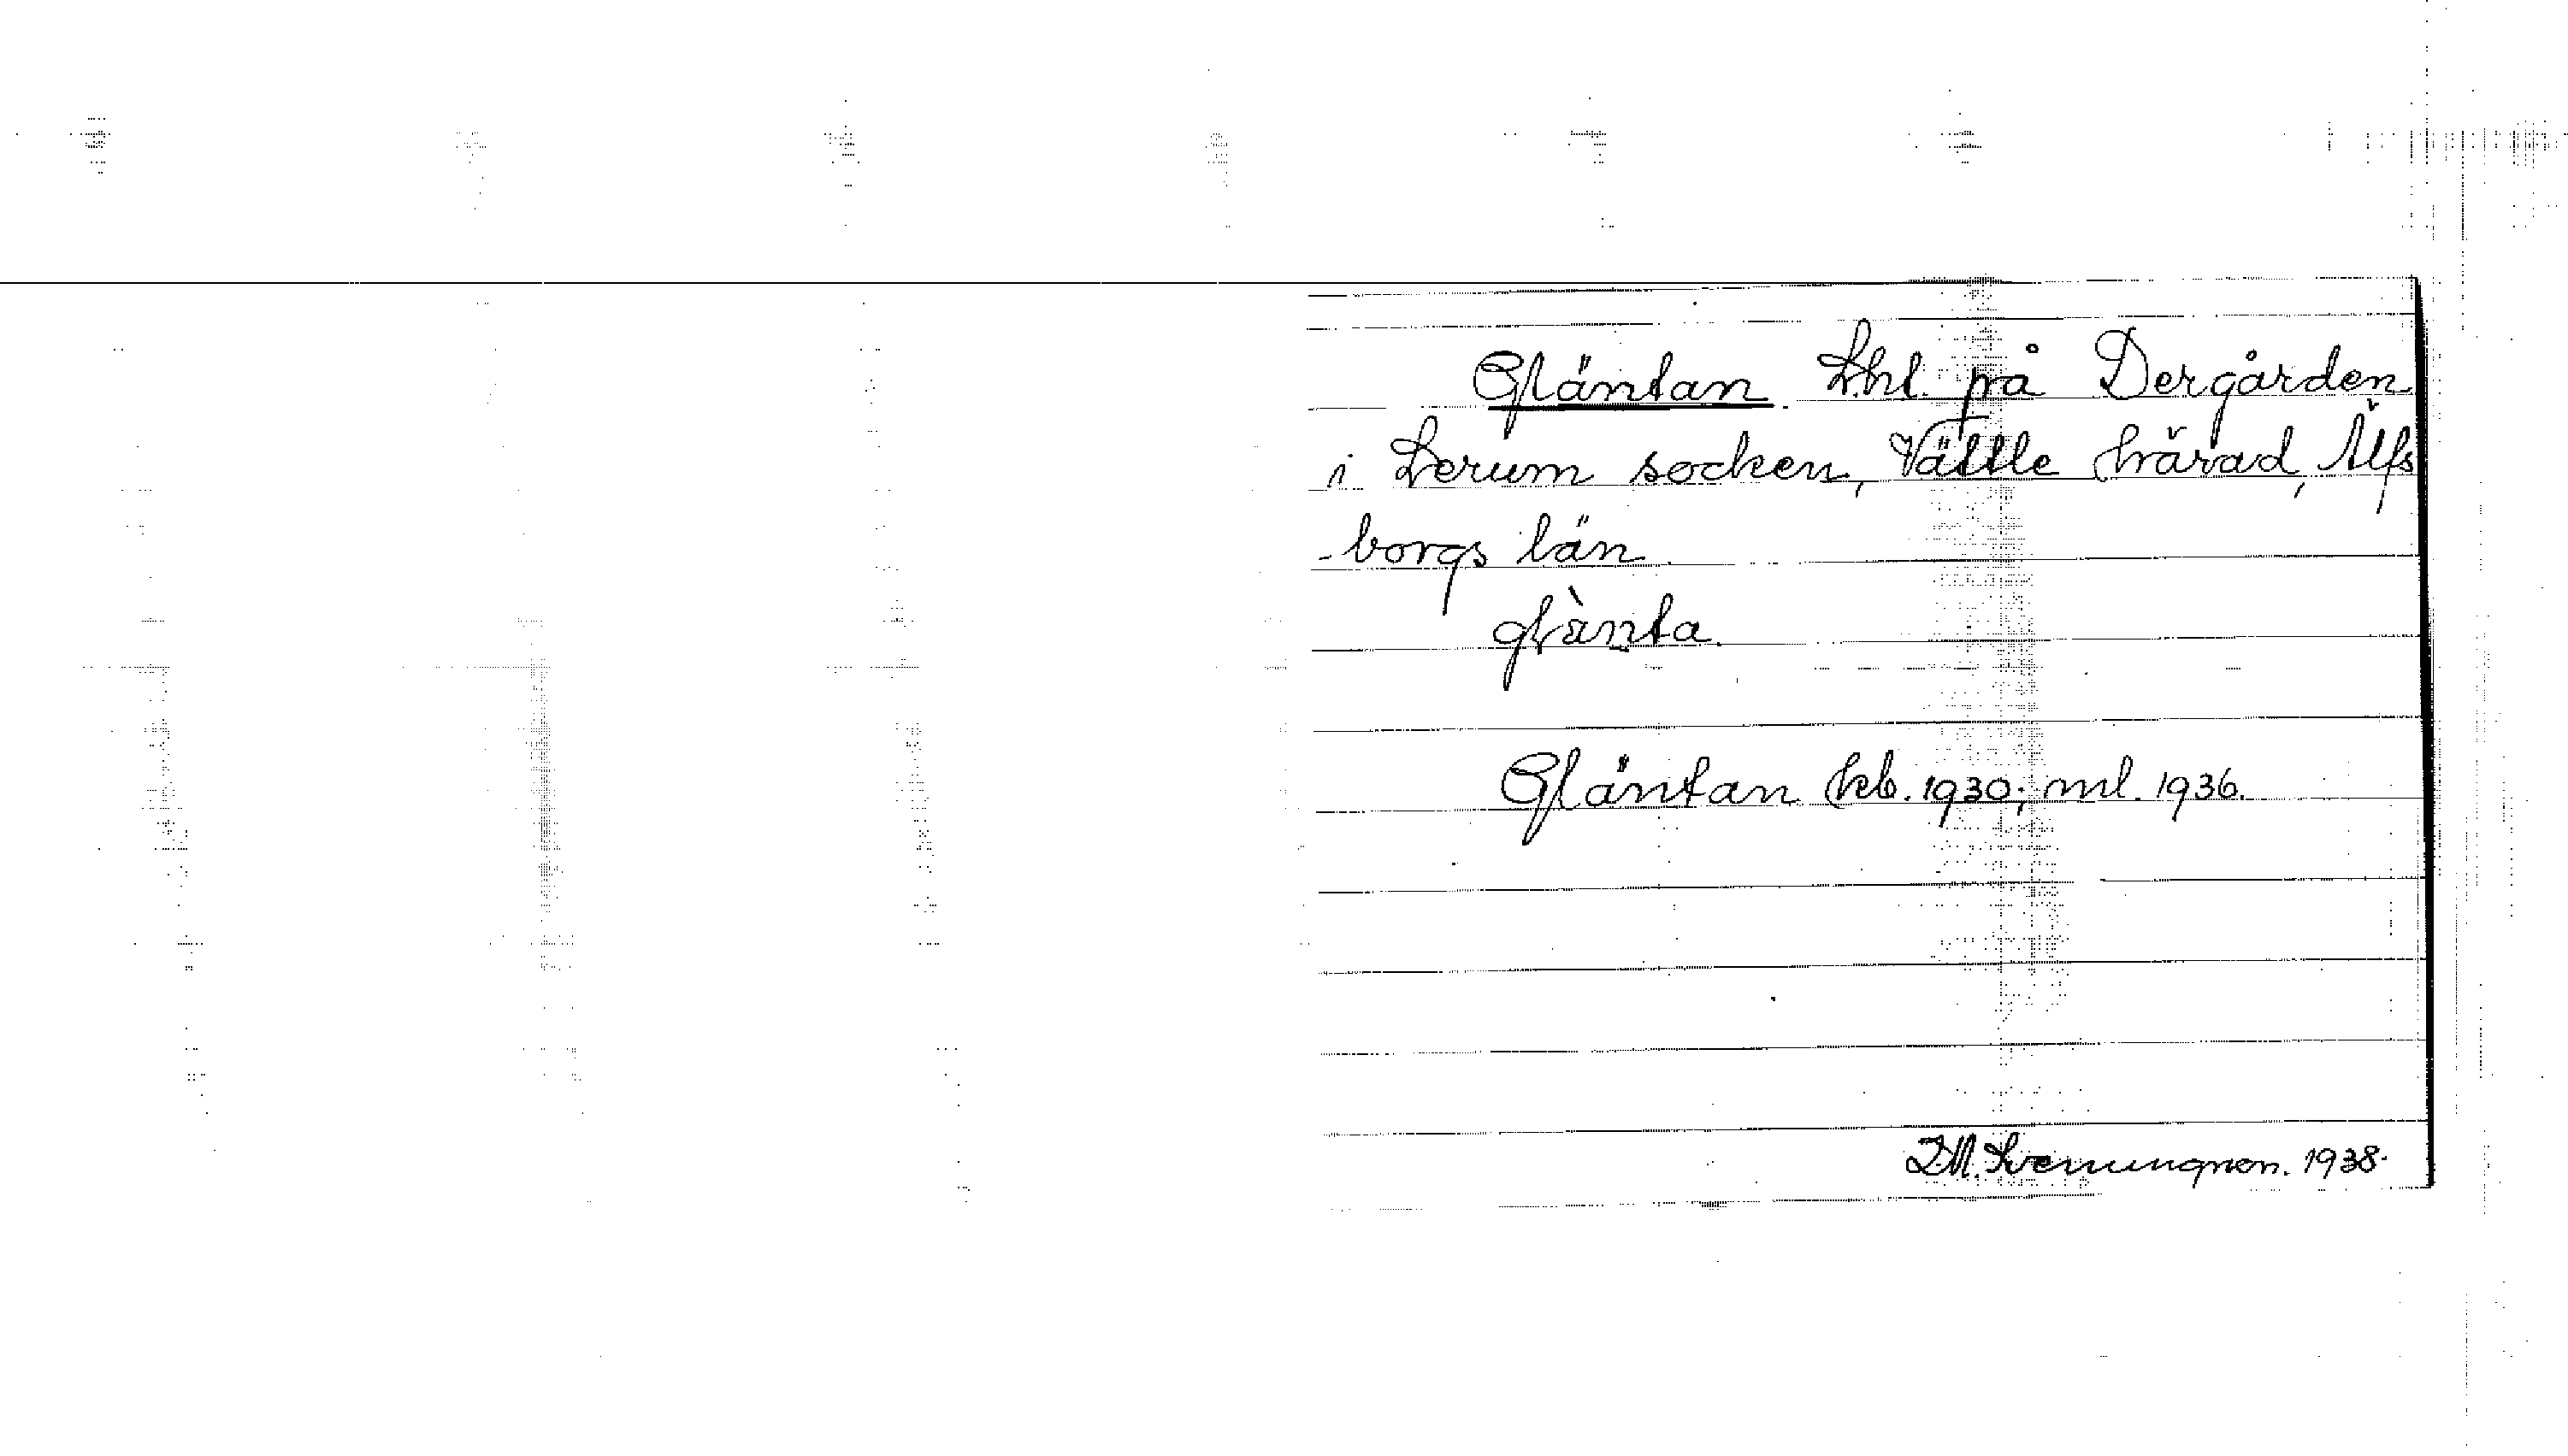 Gläntan Lhl. på Dergården
i Lerum socken, Vättle härad, Älfs
-borgs län
glànta
Gläntan kb. 1930; ml. 1936.
1938.